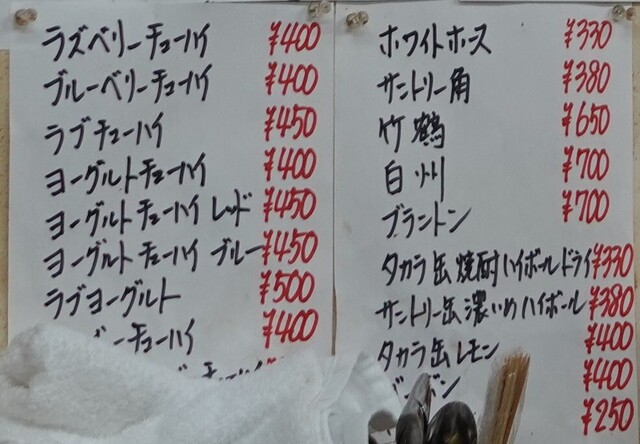 ラズベリーチューハイ ¥400
ブルーベリーチューハイ ¥400
ラブチューハイ ¥450
ヨーグルトチューハイ ¥400
ヨーグルトチューハイ レッド ¥450
ヨーグルトチューハイ ブルー ¥450
ラブヨーグルト ¥500
ーチューハイ ¥400
チューハイ
ホワイトホース ¥330
サントリー角 ¥380
竹鶴 ¥650
白州 ¥700
ブラントン ¥700
タカラ缶焼酎ハイボールドライ ¥330
サントリー缶濃いめハイボール ¥380
タカラ缶レモン ¥400
¥400
¥250